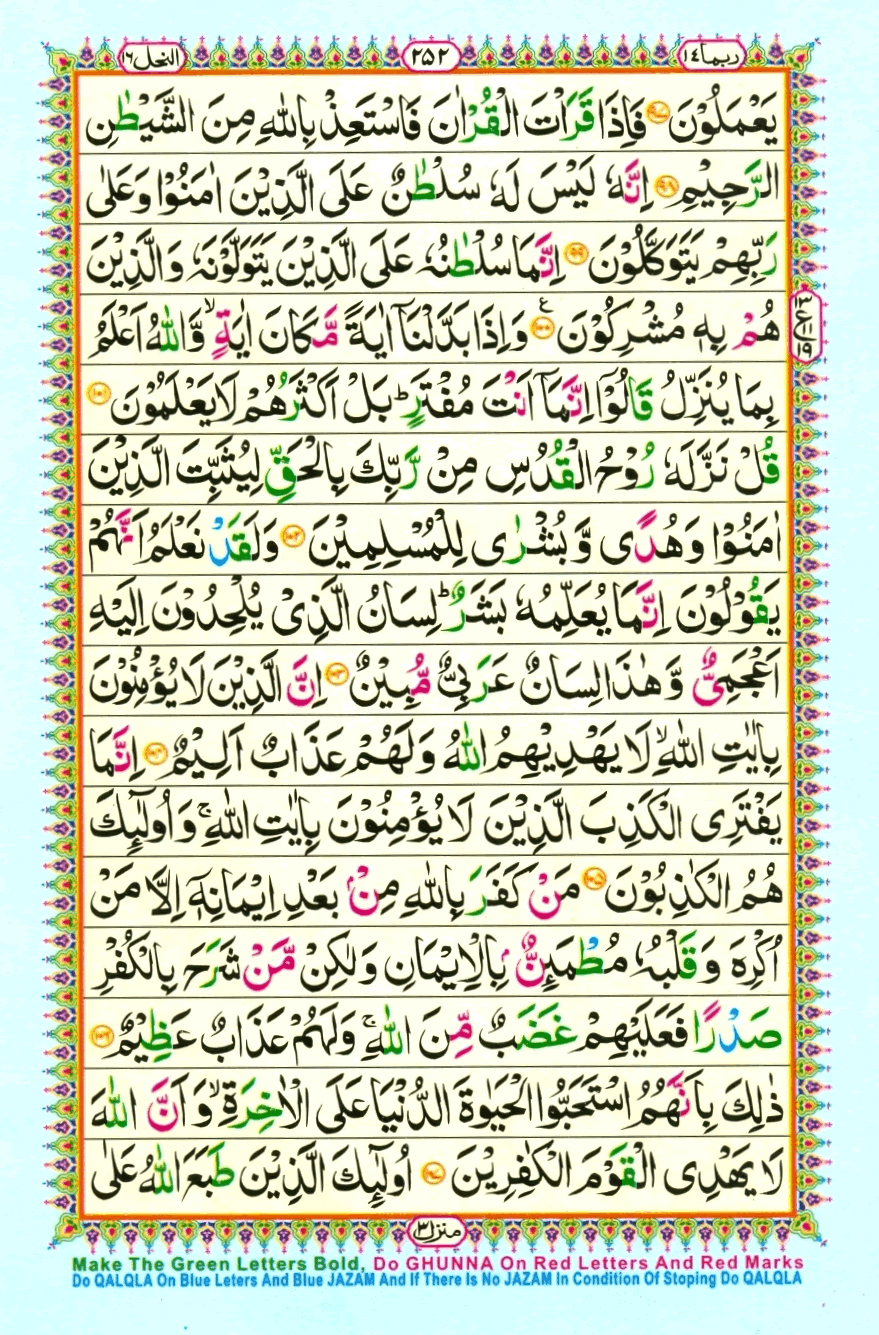 النحل ١٦
٢٥٢
ربما ١٤
يَعْمَلُوْنَ ﴿٩٧﴾ فَاِذَا قَرَاْتَ الْقُرْاٰنَ فَاسْتَعِذْ بِاللّٰهِ مِنَ الشَّيْطٰنِ
الرَّجِيْمِ ﴿٩٨﴾ اِنَّهٗ لَيْسَ لَهٗ سُلْطٰنٌ عَلَى الَّذِيْنَ اٰمَنُوْا وَعَلٰى
رَبِّهِمْ يَتَوَكَّلُوْنَ ﴿٩٩﴾ اِنَّمَا سُلْطٰنُهٗ عَلَى الَّذِيْنَ يَتَوَلَّوْنَهٗ وَالَّذِيْنَ
هُمْ بِهٖ مُشْرِكُوْنَ ﴿١٠٠﴾ ع وَاِذَا بَدَّلْنَاۤ اٰيَةً مَّكَانَ اٰيَةٍ ۙ وَّاللّٰهُ اَعْلَمُ
١٣ ع ١٩
بِمَا يُنَزِّلُ قَالُوْۤا اِنَّمَاۤ اَنْتَ مُفْتَرٍ ؕ بَلْ اَكْثَرُهُمْ لَا يَعْلَمُوْنَ ﴿١٠١﴾
قُلْ نَزَّلَهٗ رُوْحُ الْقُدُسِ مِنْ رَّبِّكَ بِالْحَقِّ لِيُثَبِّتَ الَّذِيْنَ
اٰمَنُوْا وَهُدًى وَّبُشْرٰى لِلْمُسْلِمِيْنَ ﴿١٠٢﴾ وَلَقَدْ نَعْلَمُ اَنَّهُمْ
يَقُوْلُوْنَ اِنَّمَا يُعَلِّمُهٗ بَشَرٌ ؕ لِسَانُ الَّذِيْ يُلْحِدُوْنَ اِلَيْهِ
اَعْجَمِيٌّ وَّهٰذَا لِسَانٌ عَرَبِيٌّ مُّبِيْنٌ ﴿١٠٣﴾ اِنَّ الَّذِيْنَ لَا يُؤْمِنُوْنَ
بِاٰيٰتِ اللّٰهِ ۙ لَا يَهْدِيْهِمُ اللّٰهُ وَلَهُمْ عَذَابٌ اَلِيْمٌ ﴿١٠٤﴾ اِنَّمَا
يَفْتَرِى الْكَذِبَ الَّذِيْنَ لَا يُؤْمِنُوْنَ بِاٰيٰتِ اللّٰهِ ۚ وَاُولٰٓئِكَ
هُمُ الْكٰذِبُوْنَ ﴿١٠٥﴾ مَنْ كَفَرَ بِاللّٰهِ مِنْۢ بَعْدِ اِيْمَانِهٖۤ اِلَّا مَنْ
اُكْرِهَ وَقَلْبُهٗ مُطْمَئِنٌّۢ بِالْاِيْمَانِ وَلٰكِنْ مَّنْ شَرَحَ بِالْكُفْرِ
صَدْرًا فَعَلَيْهِمْ غَضَبٌ مِّنَ اللّٰهِ ۚ وَلَهُمْ عَذَابٌ عَظِيْمٌ ﴿١٠٦﴾
ذٰلِكَ بِاَنَّهُمُ اسْتَحَبُّوا الْحَيٰوةَ الدُّنْيَا عَلَى الْاٰخِرَةِ ۙ وَاَنَّ اللّٰهَ
لَا يَهْدِى الْقَوْمَ الْكٰفِرِيْنَ ﴿١٠٧﴾ اُولٰٓئِكَ الَّذِيْنَ طَبَعَ اللّٰهُ عَلٰى
منزل ٣
Make The Green Letters Bold, Do GHUNNA On Red Letters And Red Marks
Do QALQLA On Blue Leters And Blue JAZAM And If There Is No JAZAM In Condition Of Stoping Do QALQLA